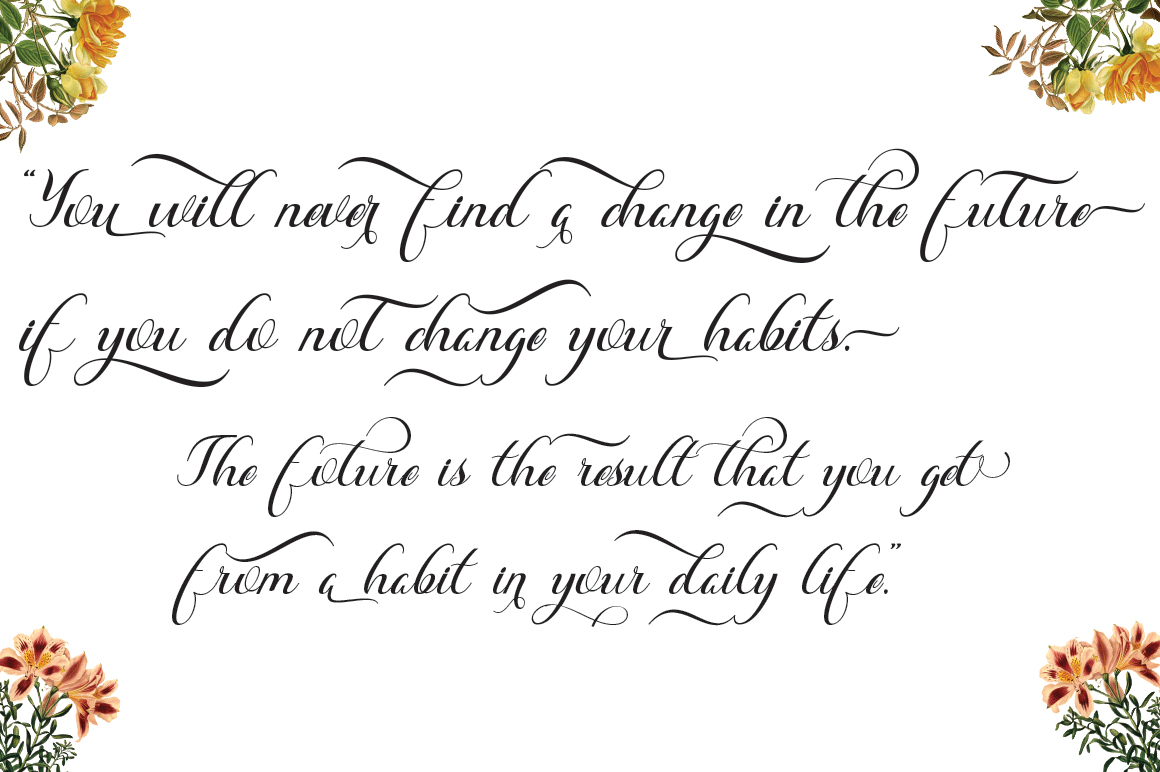 “You will never find a change in the future
if you do not change your habits.
The future is the result that you get
from a habit in your daily life.”